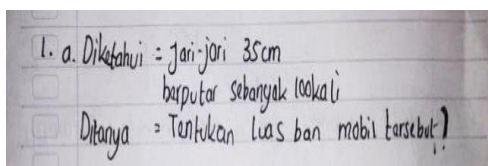 1. a. Diketahui = Jari-jari 35cm
berputar sebanyak 100kali
Ditanya = Tentukan luas ban mobil tersebut?